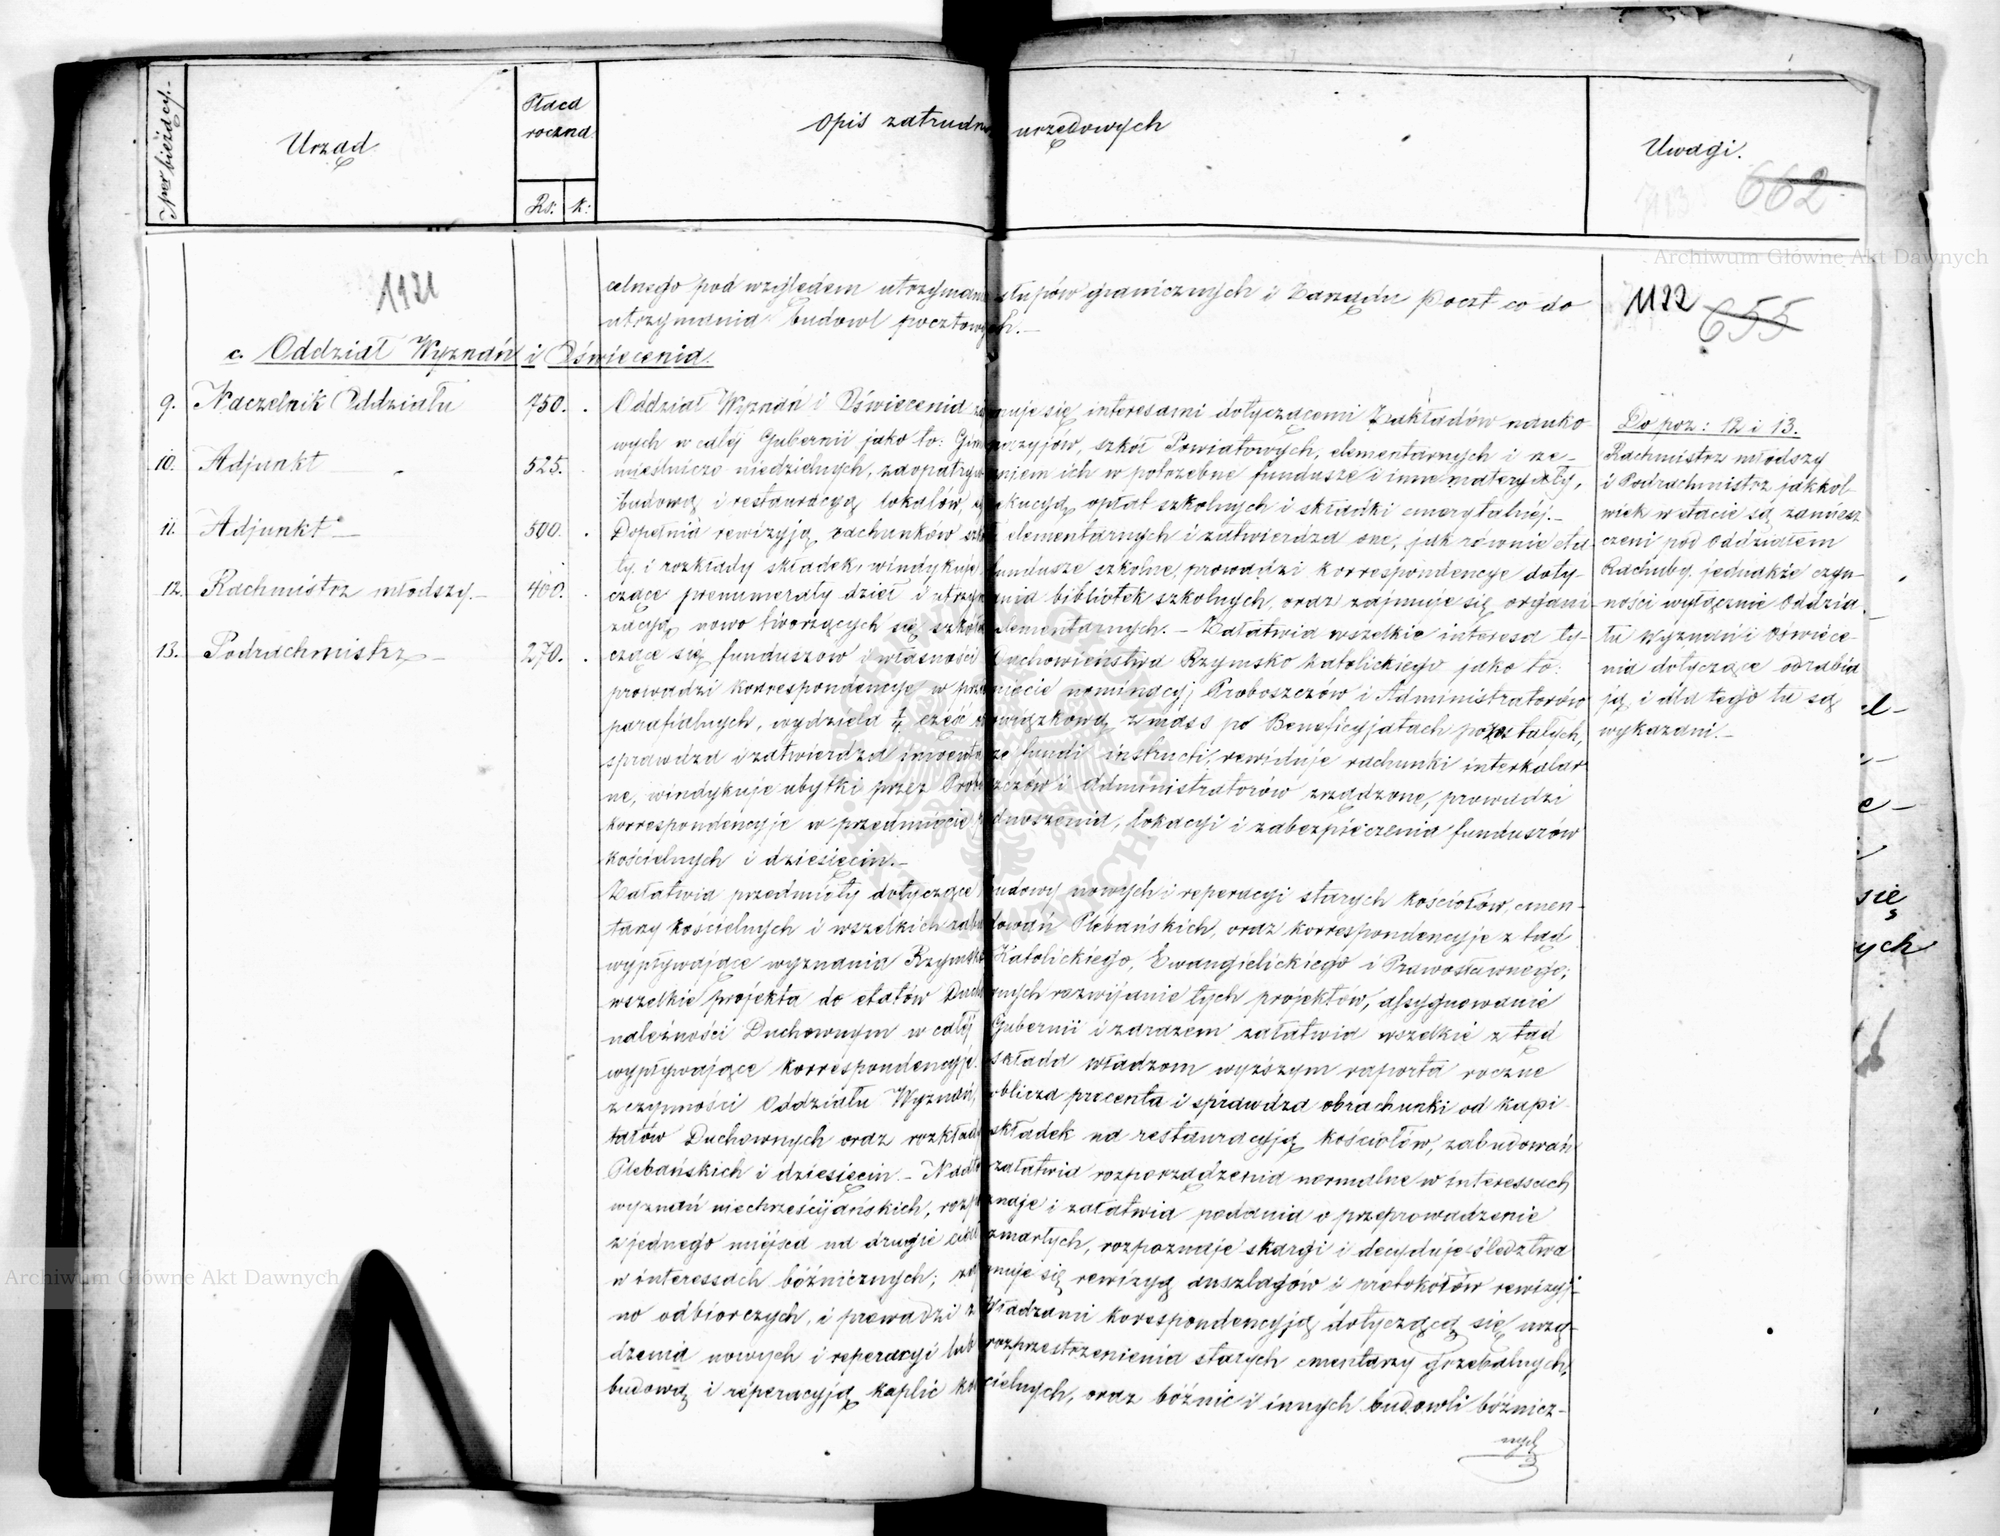 Nr bieżący.
Urząd
Płaca
roczna
Rs: k:
Opis zatrudnień urzędowych
Uwagi.
662
Archiwum Główne Akt Dawnych
1121
1122
655
celnego pod względem utrzymania słupów granicznych i Zarządu Poczt co do
utrzymania budowl pocztowych.—
c. Oddział Wyznań i Oświecenia.
9. Naczelnik Oddziału 750.
10. Adjunkt 525.
11. Adjunkt 500.
12. Rachmistrz młodszy.— 400.
13. Podrachmistrz— 270.
Oddział Wyznań i Oświecenia zajmuje się interesami dotyczącemi Zakładów nauko-
wych w całej Gubernii jako to: Gimnazyjów, szkół Powiatowych, elementarnych i rze-
mieślniczo niedzielnych, zaopatrywaniem ich w potrzebne fundusze i inne materyały,
budową i restauracyą lokalów, exekucyą opłat szkolnych i składki emerytalnéj.—
Dopełnia rewizyją rachunków szkół elementarnych i zatwierdza one, jak rownie eta-
ty i rozkłady składek, windykuje fundusze szkolne, prowadzi korrespondencye doty-
czące prenumeraty dzieł i utrzymania bibliotek szkolnych, oraz zajmuje się organi-
zacyą nowo tworzących się szkół elementarnych.— Załatwia wszelkie interesa ty-
czące się funduszow i własności Duchowieństwa Rzymsko Katolickiego jako to:
prowadzi korrespondencye w przedmiocie nominacyj Proboszczów i Administratorów
parafialnych, wydziela ¼ część obowiązkową z mass po Beneficyjatach pozostałych,
sprawdza i zatwierdza inwentarze fundi instructi, rewiduje rachunki interkalar-
ne, windykuje ubytki przez Proboszczów i Administratorów zrządzone, prowadzi
korrespondencyje w przedmiocie podnoszenia, lokacyi i zabezpieczenia funduszów
kościelnych i dziesięcin.—
Załatwia przedmioty dotyczące budowy nowych i reperacyi starych kościołów, cmen-
tarzy kościelnych i wszelkich zabudowań Plebańskich, oraz korrespondencyje z tąd
wypływające wyznania Rzymsko Katolickiego, Ewangielickiego i Prawosławnego;
wszelkie projekta do etatów Duchownych rozwijanie tych projektów, assygnowanie
należności Duchownym w całéj Gubernii i zarazem załatwia wszelkie z tąd
wypływające korrespondencyje. składa władzom wyższym raporta roczne
z czynności Oddziału Wyznań, oblicza procenta i sprawdza obrachunki od kapi-
tałów Duchownych oraz rozkład składek na restauracyją kościołów, zabudowań
Plebańskich i dziesięcin.— Nadto załatwia rozporządzenia normalne w interessach
wyznań niechrześcijańskich, rozpoznaje i załatwia podania o przeprowadzenie
z jednego miejsca na drugie ciał zmarłych, rozpoznaje skargi i decyduje śledztwa
w interessach bóżnicznych; zajmuje się rewizyą anszlagów i protokółów rewizyj-
no odbiorczych, i prowadzi z Władzami korespondencyją dotyczącą się urzą-
dzenia nowych i reperacyi lub rozprzestrzenienia starych cmentarzy grzebalnych,
budową i reperacyją kaplic kościelnych, oraz bóżnic i innych budowli bóżnicz-
nych
Do poz: 12 i 13.
Rachmistrz młodszy
i Podrachmistrz jakkol-
wiek w etacie są zamiesz
czeni pod Oddziałem
Rachuby, jednakże czyn-
ności wyłącznie Oddzia-
łu Wyznań i Oświece-
nia dotyczące odrabia
ją, i dla tego tu są
wykazani.—
się
ych
Archiwum Główne Akt Dawnych